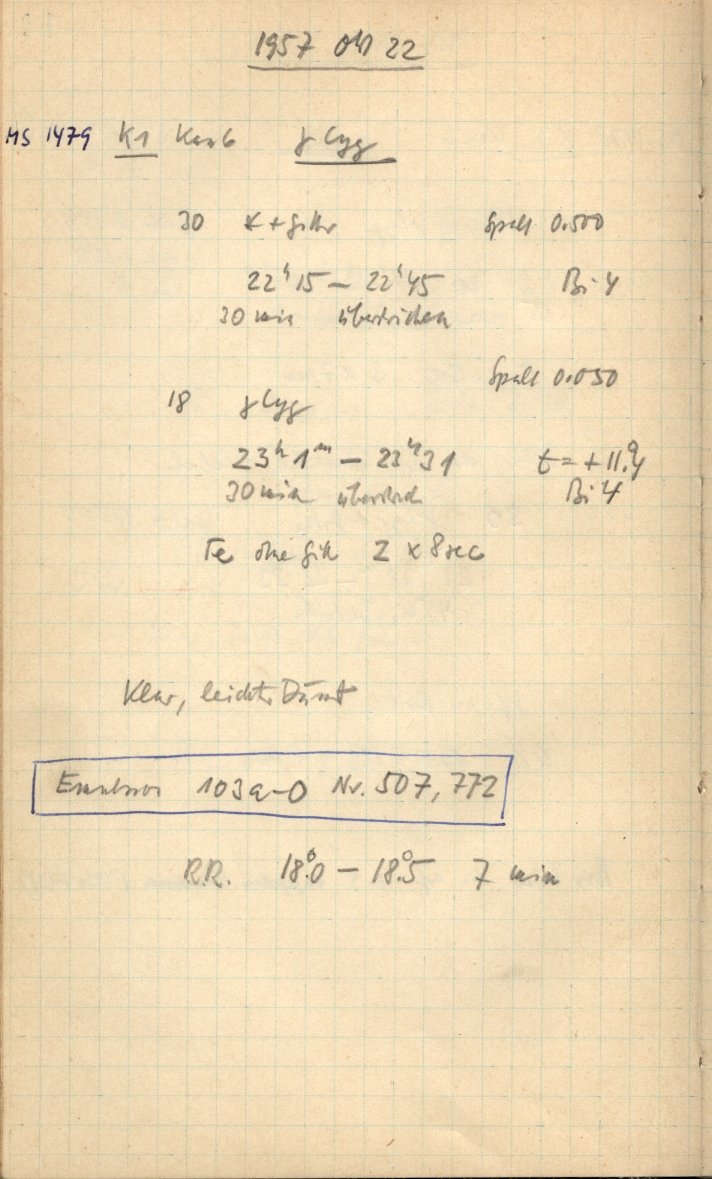 1957 Okt 22
MS 1479 K1 Kam b γ Cyg
30 * + Gitter Spalt 0.500
22ʰ15 – 22ʰ45 Bi 4
30 min überstrichen
Spalt 0.050
18 γ Cyg
23ʰ1ᵐ – 23ʰ31 t = +11.°4
30 min überstrich Bi 4
Fe ohne Gitt 2 x 8 sec
Klar, leichter Dunst
Emulsion 103a-O Nr. 507,772
R.R. 18.°0 – 18.°5 7 min